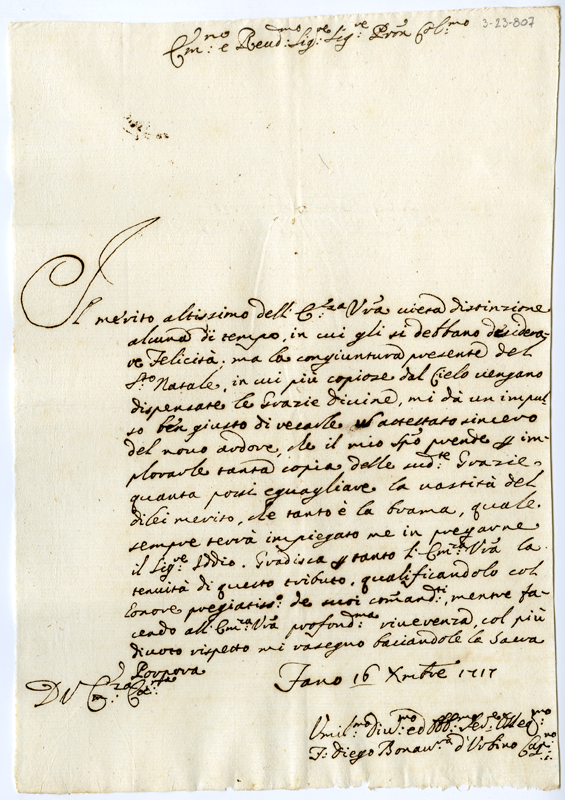 3-23-807
Em:no e Reud:mo Sig:re Sig:re Prõn Col:mo
Il merito altissimo dell: E:za Vrã vieta distinzione
alcuna di tempo, in cui gli si debbano desidera-
re Felicità, ma la congiuntura presente del
S:to Natale, in cui più copiose dal Cielo vengano
dispensate le Grazie divine, mi dà un impul-
so ben giusto di recarle attestato sincero
del novo ardore, che il mio prende im-
plorarle tanta copia delle sud:te Grazie,
quanta possi eguagliare la vastità del
dilei merito, che tanto è la brama, quale
sempre terrà impiegato me in pregarne
il Sig:re Iddio. Gradisca tanto l: Em:za Vrã la
tenuità di questo tributo, qualificandolo col
Honore pregiatiss:o de suoi comand:ti, mentre fa-
cendo all: Em:za Vrã profond:ma riverenza, col più
divoto rispetto mi rasegno baciandole la Sacra
Porpora
D V Em:za
Fano 16 Xmbre 1717
Vmil:mo Diu:mo ed
F: Diego Bonau:ra d'Vrbino